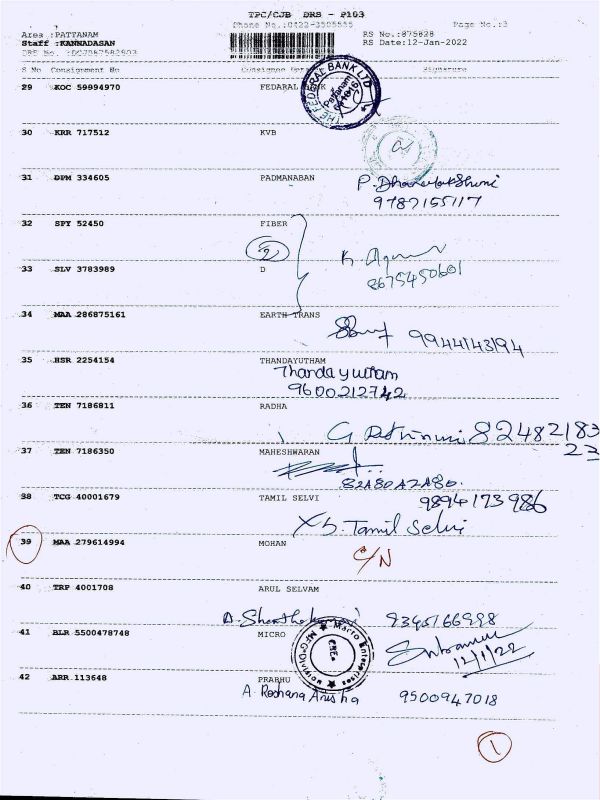 TPC/CJB DRS - P103
Phone No.:0422-3505555 Page No.:3
Area :PATTANAM RS No.:875828
Staff :KANNADASAN RS Date:12-Jan-2022
S No Consignment No Consignee Signature
29 KOC 59894970 FEDARAL
THE FEDERAL BANK LTD
Pattanam
30 KRR 717512 KVB
31 DPM 334605 PADMANABAN
9787155117
32 SPY 52450 FIBER
2
33 SLV 3783989 D
8675450601
34 MAA 286875161 EARTH TRANS
9944143194
35 HSR 2254154 THANDAYUTHAM
Thandayutham
9600212742
36 TEN 7186811 RADHA
82482183
23
37 TEN 7186350 MAHESHWARAN
38 TCG 40001679 TAMIL SELVI
9894173986
Tamil Selvi
39 MAA 279614994 MOHAN
C/N
40 TRP 4001708 ARUL SELVAM
9345166998
41 BLR 5500478748 MICRO
Marro Enterprises
12/1/22
42 ARR 113648 PRABHU
A. Roshana Anisha 9500947018
1